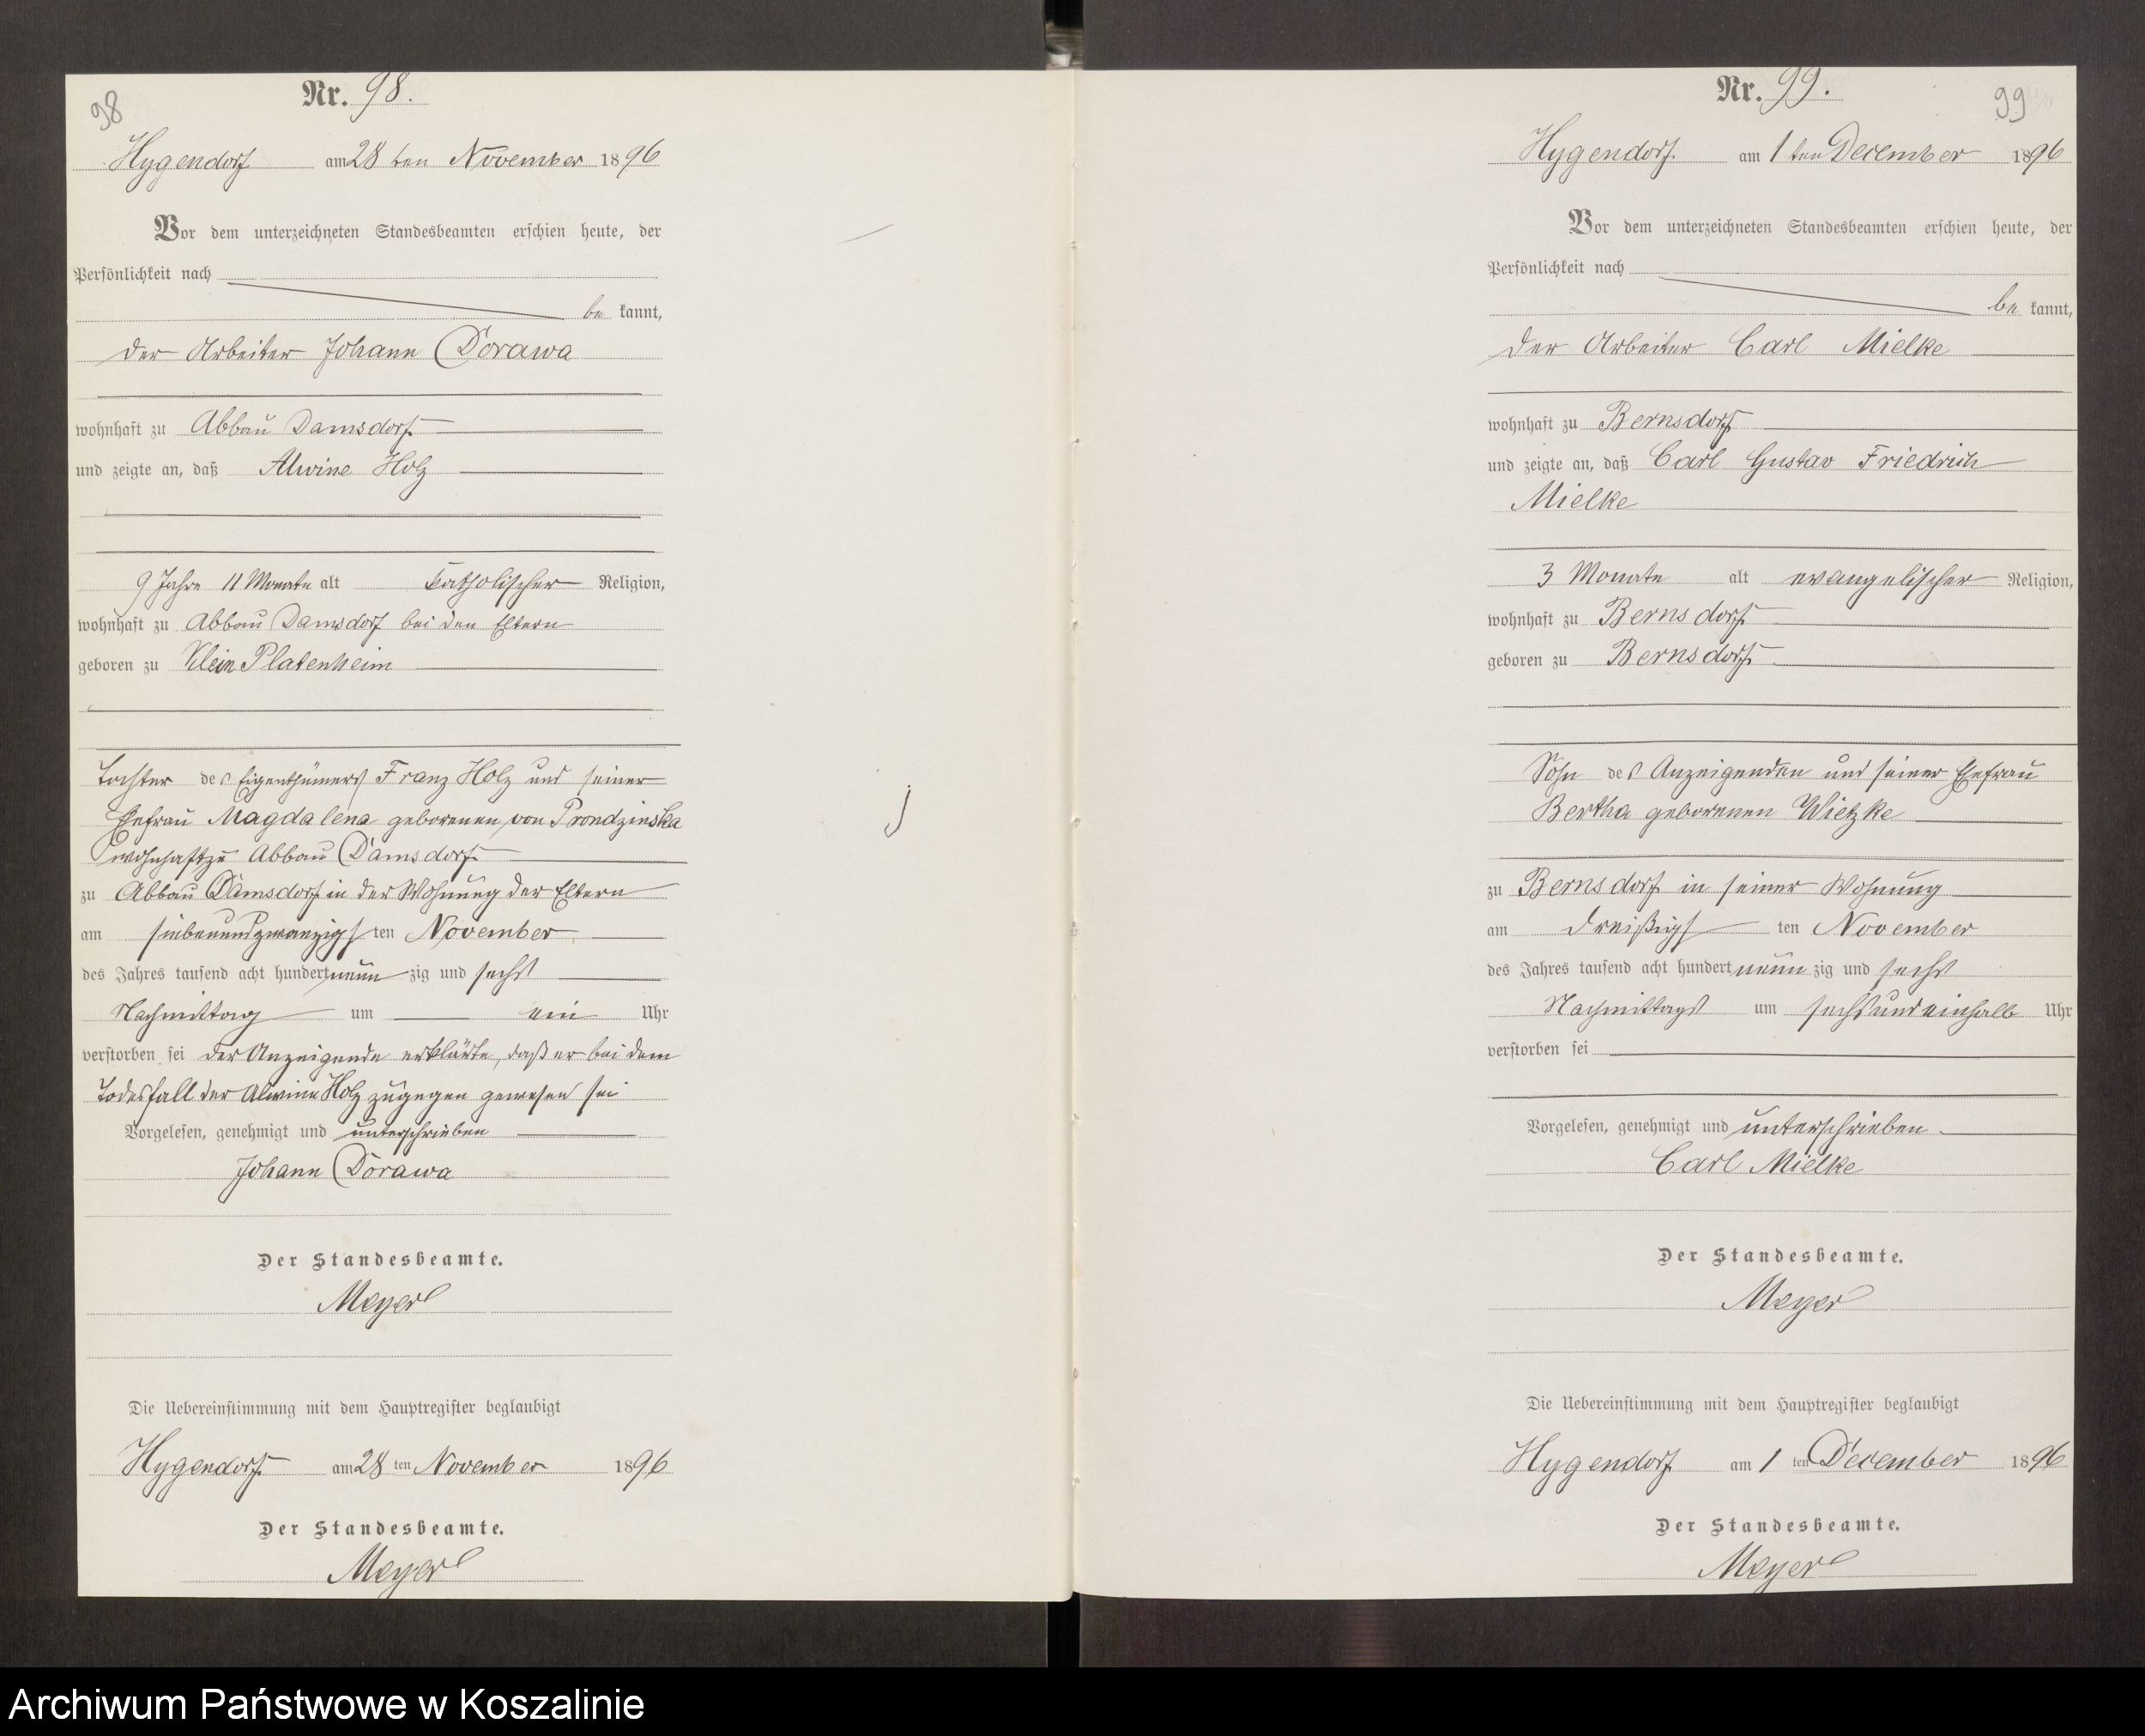 98
Nr. 98.
Hygendorf am 28 ten November 1896
Vor dem unterzeichneten Standesbeamten erschien heute, der
Persönlichkeit nach
be kannt,
der Arbeiter Johann Dorawa
wohnhaft zu Abbau Damsdorf
und zeigte an, daß Alwine Holz
9 Jahre 11 Monate alt katholischer Religion,
wohnhaft zu Abbau Damsdorf bei den Eltern
geboren zu Klein Platenheim
Tochter des Eigenthümers Franz Holz und seiner
Ehefrau Magdalena geborenen von Prondzinska
wohnhaft zu Abbau Damsdorf
zu Abbau Damsdorf in der Wohnung der Eltern
am siebenundzwanzigs ten November
des Jahres tausend acht hundert neun zig und sechs
Nachmittag um ein Uhr
verstorben sei der Anzeigende erklärte, daß er bei dem
Todesfall der Alwine Holz zugegen gewesen sei
Vorgelesen, genehmigt und unterschrieben
Johann Dorawa
Der Standesbeamte.
Meyer
Die Uebereinstimmung mit dem Hauptregister beglaubigt
Hygendorf am 28 ten November 1896
Der Standesbeamte.
Meyer
99
Nr. 99.
Hygendorf am 1 ten December 1896
Vor dem unterzeichneten Standesbeamten erschien heute, der
Persönlichkeit nach
be kannt,
der Arbeiter Carl Mielke
wohnhaft zu Bernsdorf
und zeigte an, daß Carl Gustav Friedrich
Mielke
3 Monate alt evangelischer Religion,
wohnhaft zu Bernsdorf
geboren zu Bernsdorf
Sohn des Anzeigenden und seiner Ehefrau
Bertha geborenen Wietzke
zu Bernsdorf in seiner Wohnung
am dreißigs ten November
des Jahres tausend acht hundert neun zig und sechs
Nachmittags um sechs und einhalb Uhr
verstorben sei
Vorgelesen, genehmigt und unterschrieben
Carl Mielke
Der Standesbeamte.
Meyer
Die Uebereinstimmung mit dem Hauptregister beglaubigt
Hygendorf am 1 ten December 1896
Der Standesbeamte.
Meyer
Archiwum Państwowe w Koszalinie